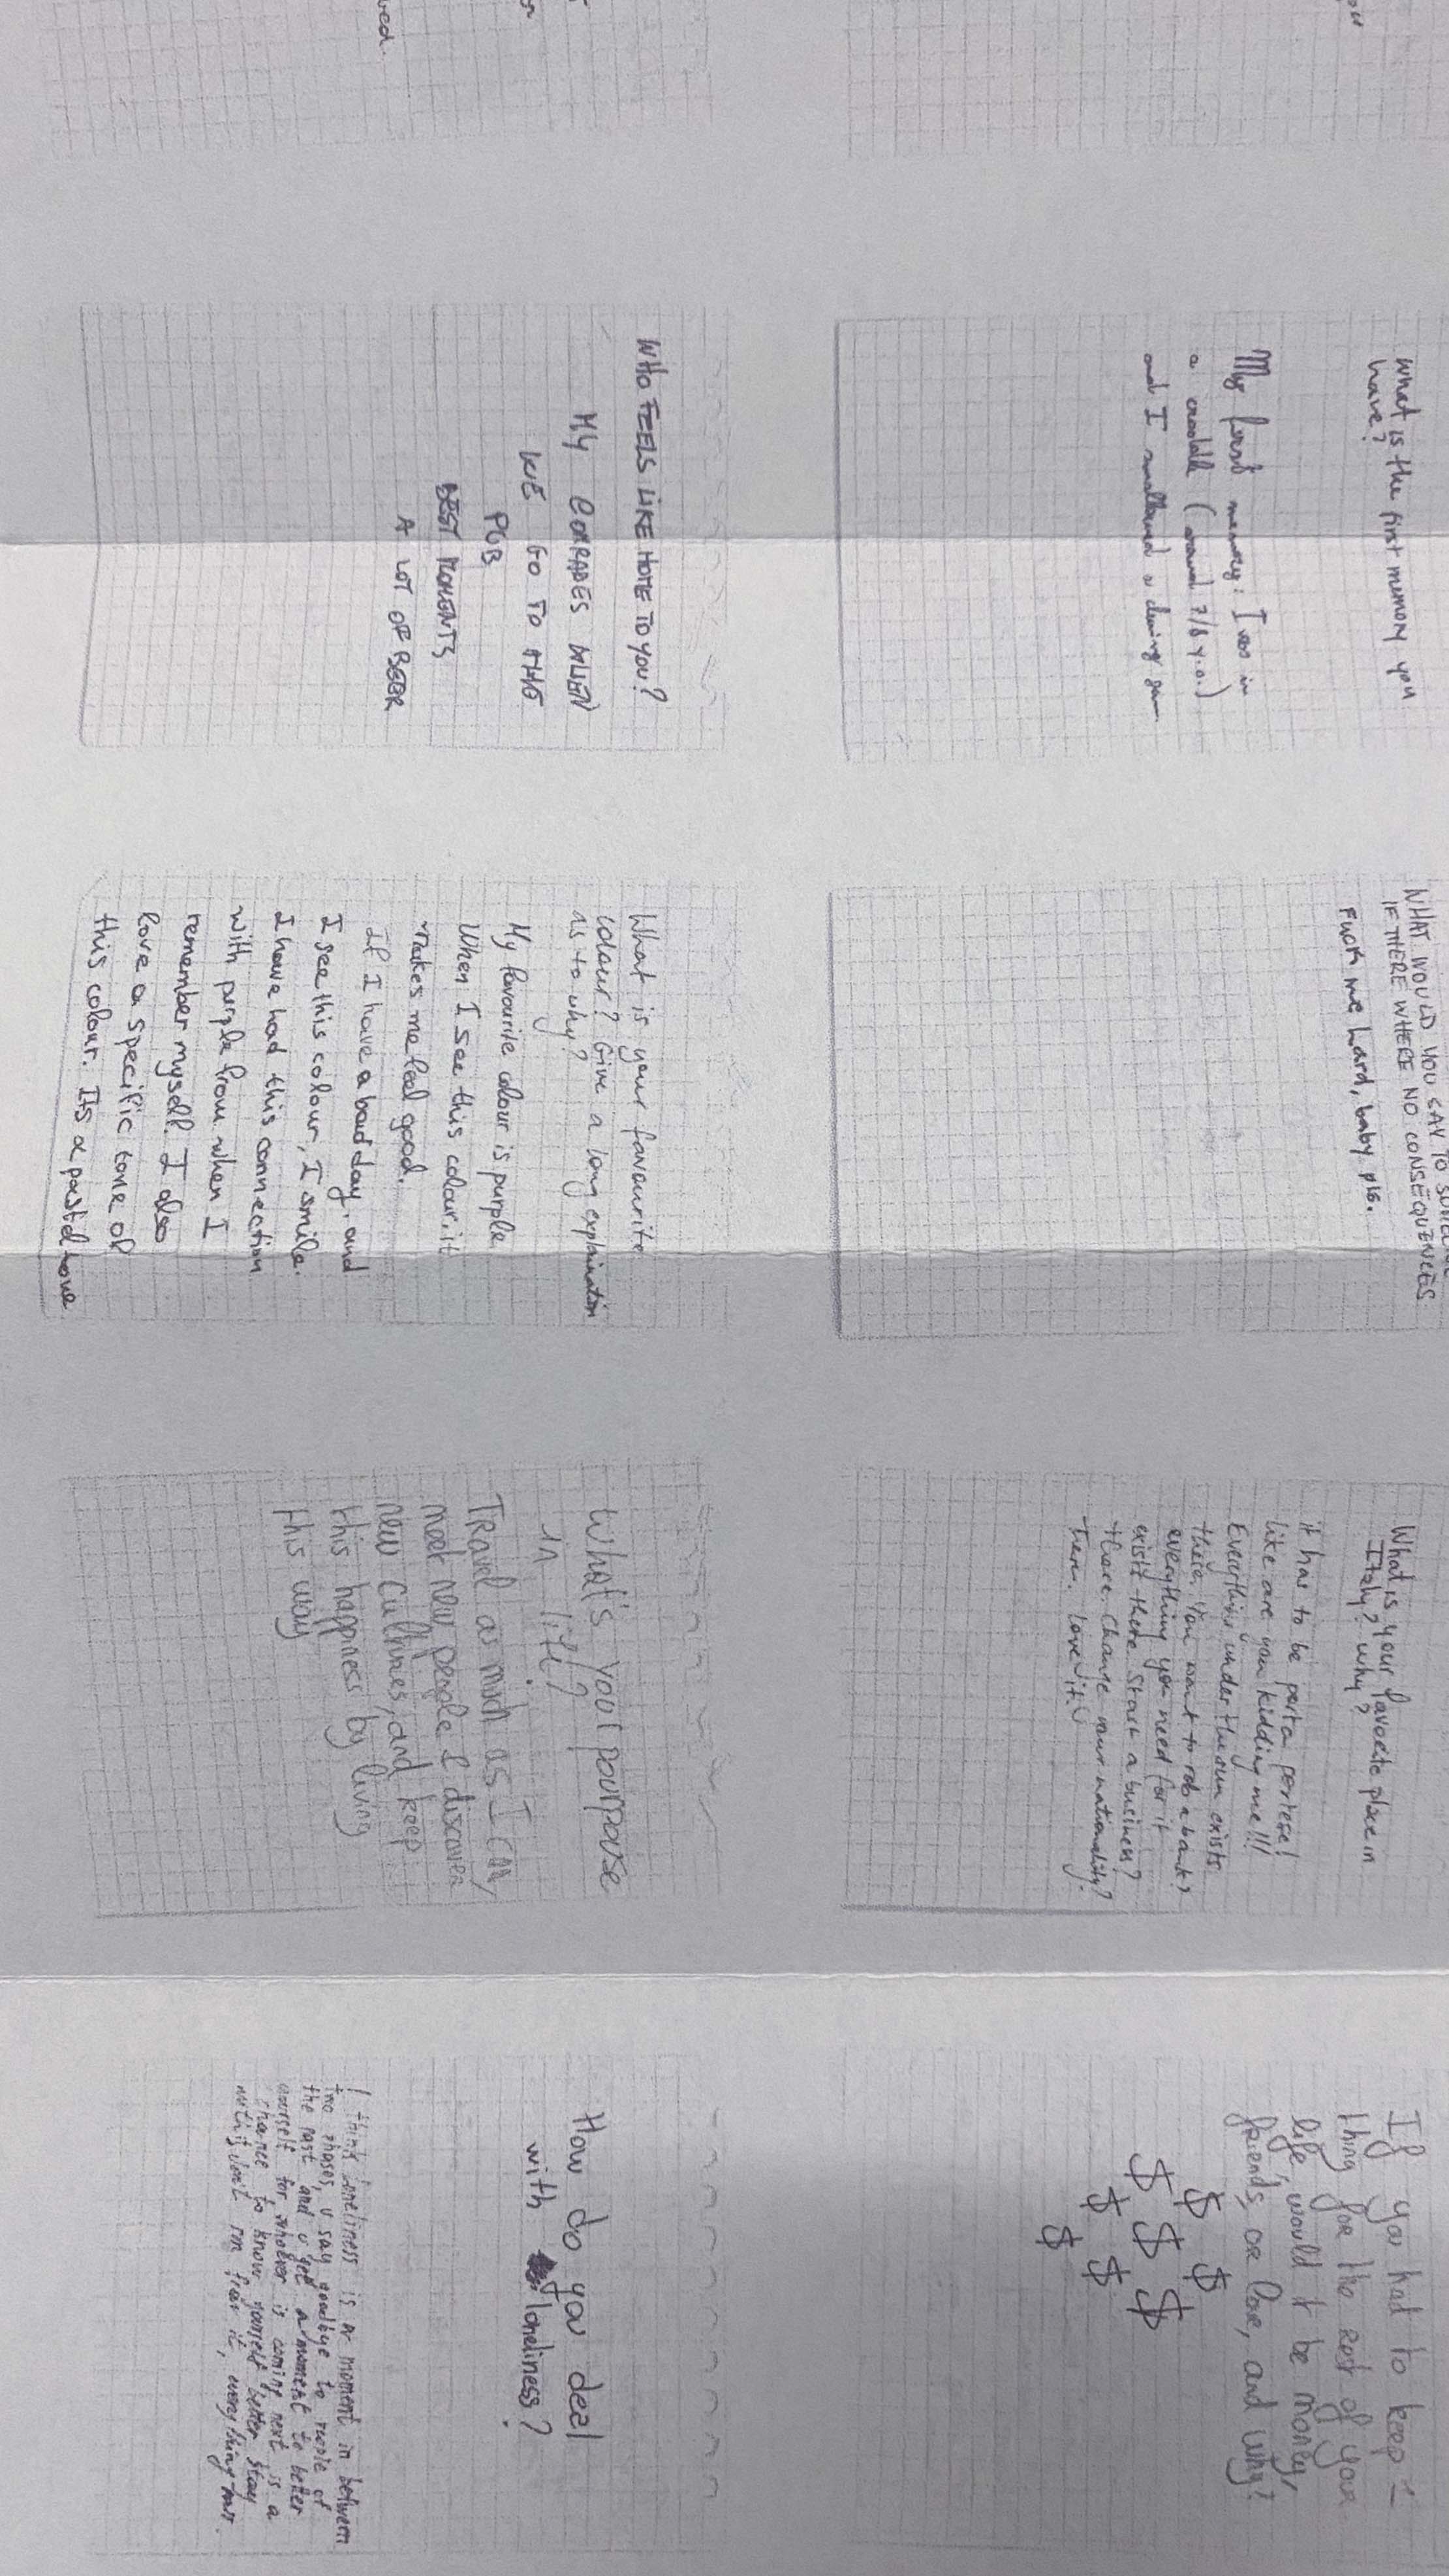 you
What is the first memory you
have?
My first memory: I was in
a (around 7/8 y.o.)
and I swallowed a
NHAT WOULD YOU SAY TO
IF THERE WHERE NO CONSEQUENCES
Fuck me hard, baby pls.
What is your favorite place in
Italy? why?
it has to be porta portese!
like are you kidding me!!!
Everything under the sun exists
there. You want to rob a bank?
everything you need for it
exists there. Start a business?
there. Change your nationality?
There. Love it.
If you had to keep 1
thing for the rest of your
life, would it be money,
friends, or love, and why?
$ $ $ $ $ $ $ $
ved.
WHO FEELS LIKE HOME TO YOU?
MY COMRADES WHEN
WE GO TO THE
PUB
BEST MOMENTS
A LOT OF BEER
What is your favourite
colour? Give a long explaination
as to why?
My favourite colour is purple.
When I see this colour, it
makes me feel good.
If I have a bad day, and
I see this colour, I smile.
I have had this connection
with purple from when I
remember myself. I also
love a specific tone of
this colour. Its a pastel tone
What's your pourpouse
in life?
Travel as much as I can,
meet new people & discover
new cultures, and keep
this happiness by living
this way
How do you deal
with loneliness?
I think loneliness is a moment in between
two phases, u say goodbye to people of
the past and u get a moment to better
yourself for whoever is coming next is a
chance to know yourself better stay
with it don't run from it, everything pass.